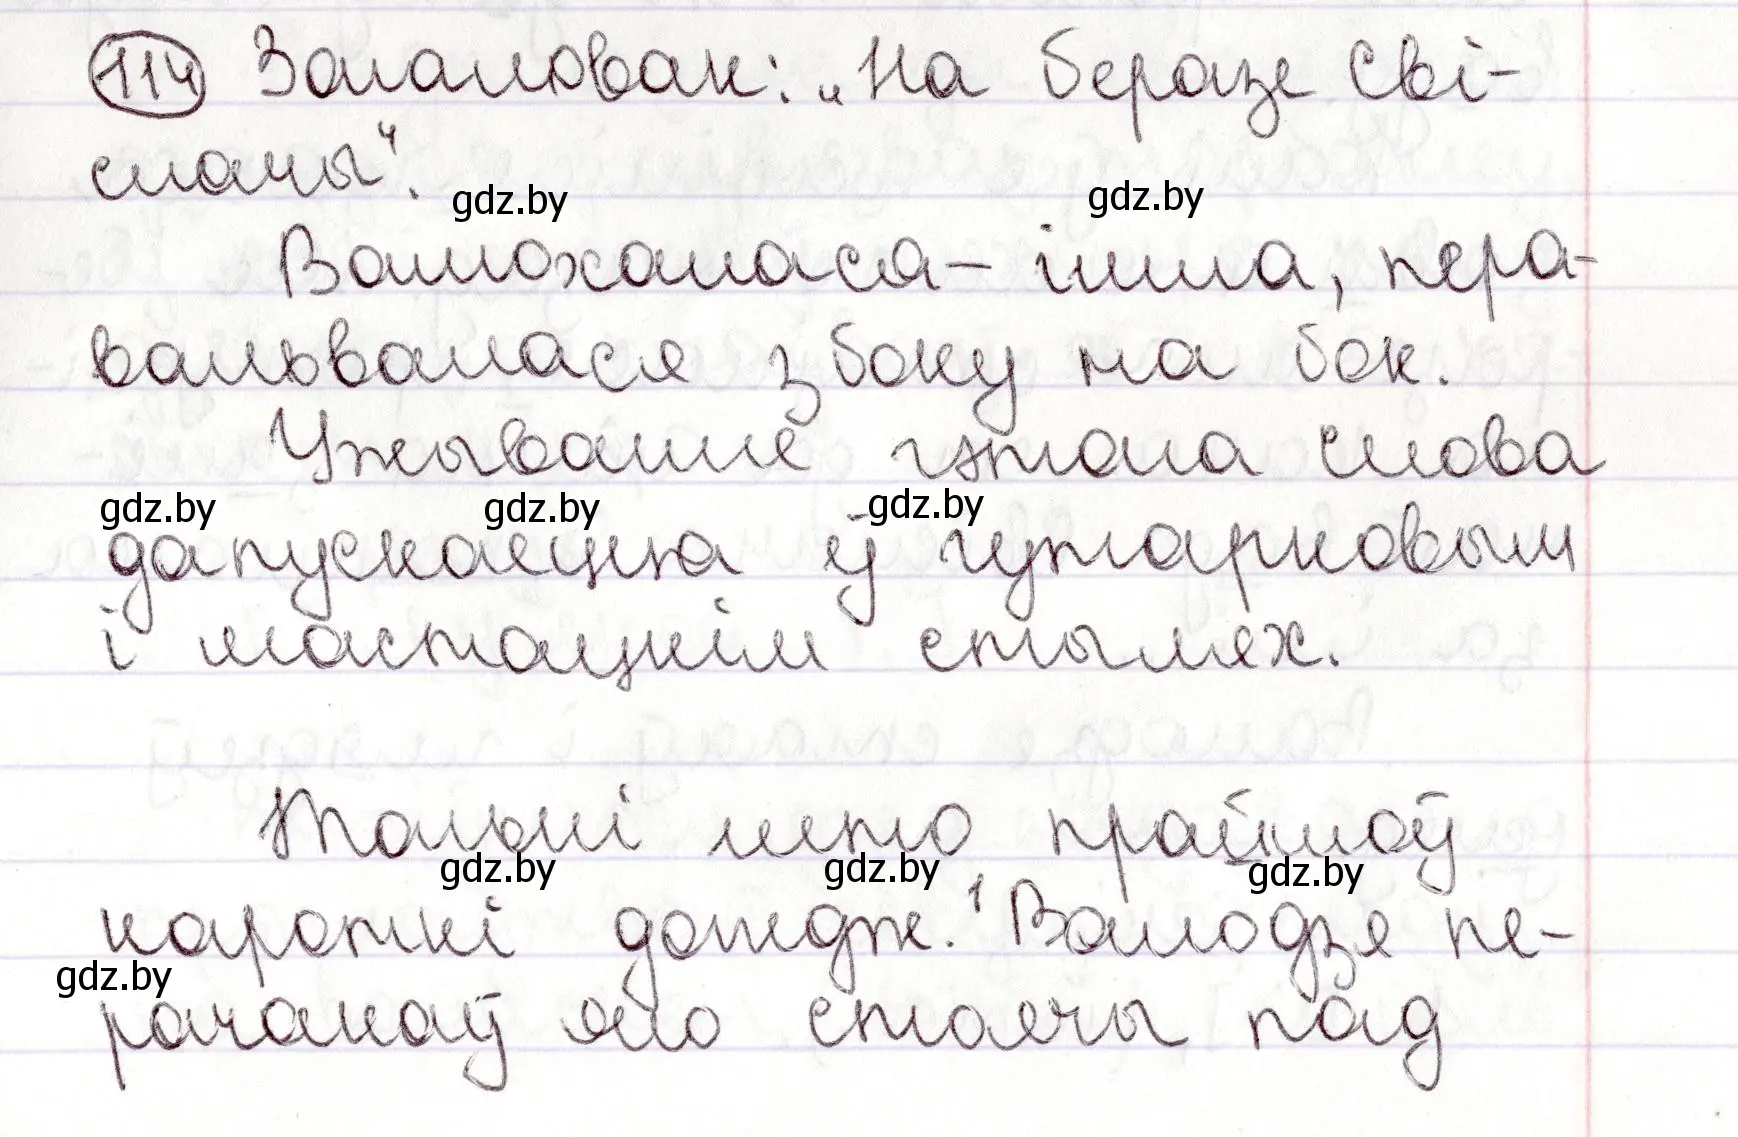 114 Загаловак: „На беразе Сві-
слачы".
gdz.by gdz.by
Валюхалася – ішла, пера-
вальвалася з боку на бок.
Ужыванне гэтага слова
gdz.by gdz.by gdz.by
дапускаецца ў гутарковым
і мастацкім стылях.
Толькі што прайшоў
gdz.by gdz.by gdz.by
кароткі дождж.¹ Валодзя пе-
gdz.by
рачакаў яго стоячы пад